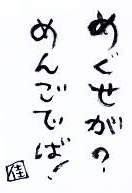 めぐせが？
めんごでば！
佳